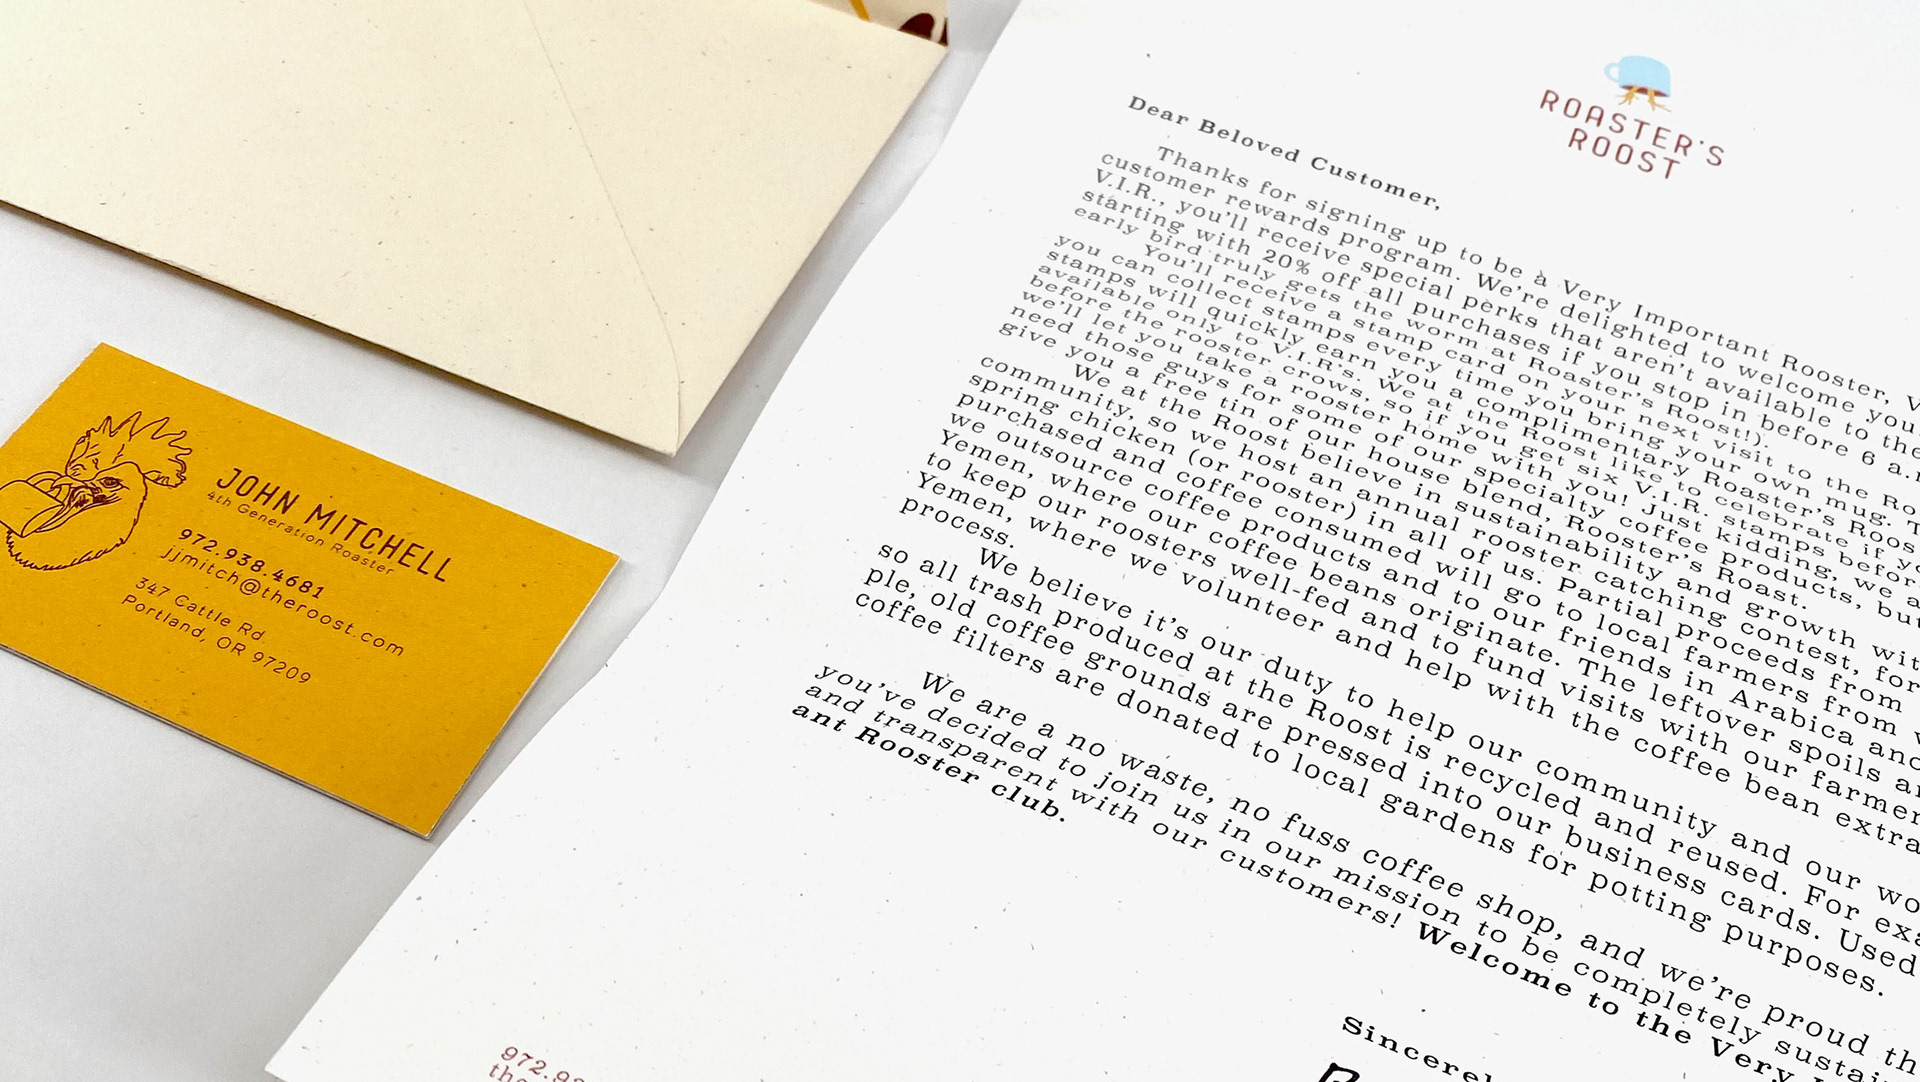 JOHN MITCHELL
4th Generation Roaster
972.938.4681
jjmitch@theroost.com
347 Cattle Rd.
Portland, OR 97209
ROASTER'S
ROOST
Dear Beloved Customer,
Thanks for signing up to be a Very Important Rooster, V
customer rewards program. We're delighted to welcome you
V.I.R., you'll receive special perks that aren't available to the
starting with 20% off all purchases if you stop in before 6 a.m
early bird truly gets the worm at Roaster's Roost!).
You'll receive a stamp card on your next visit to the Ro
you can collect stamps every time you bring your own mug. T
stamps will quickly earn you a complimentary Roaster's Roos
available only to V.I.R's. We at the Roost like to celebrate if yo
before the rooster crows, so if you get six V.I.R. stamps before
we'll let you take a rooster home with you! Just kidding, we a
need those guys for some of our specialty coffee products, but
give you a free tin of our house blend, Rooster's Roast.
We at the Roost believe in sustainability and growth wit
community, so we host an annual rooster catching contest, for
spring chicken (or rooster) in all of us. Partial proceeds from
purchased and coffee consumed will go to local farmers from
we outsource coffee products and to our friends in Arabica and
Yemen, where our coffee beans originate. The leftover spoils a
to keep our roosters well-fed and to fund visits with our farmer
Yemen, where we volunteer and help with the coffee bean extra
process.
We believe it's our duty to help our community and our wo
so all trash produced at the Roost is recycled and reused. For exa
ple, old coffee grounds are pressed into our business cards. Used
coffee filters are donated to local gardens for potting purposes.
We are a no waste, no fuss coffee shop, and we're proud th
you've decided to join us in our mission to be completely sustai
and transparent with our customers! Welcome to the Very
ant Rooster club.
Sincerel
972.93
the